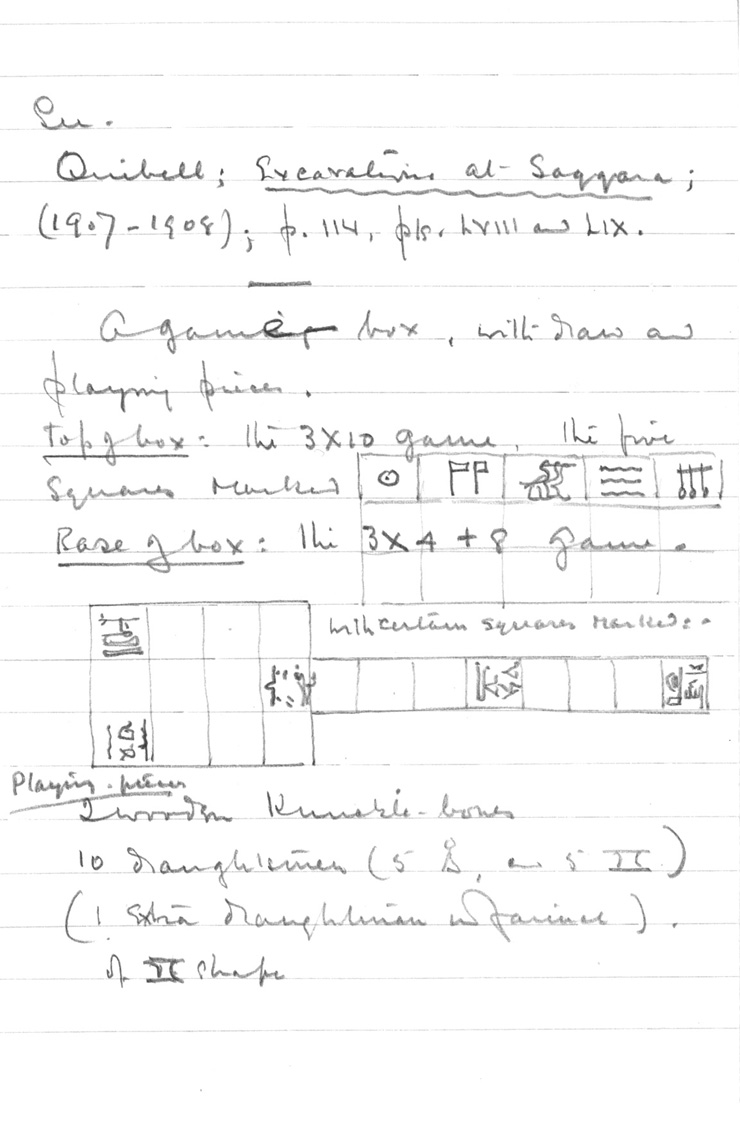 See.
Quibell; Excavations at Saqqara;
(1907-1908); p. 114, pls. LVIII and LIX.
A games box, with draw and
playing pieces.
Top of box: The 3x10 game, the five
squares marked
Base of box: The 3x4+8 game.
with certain squares marked:-
Playing-pieces
2 wooden Knuckle-bones
10 draughtsmen (5, and 5)
(1 extra draughtsman in faience).
of shape